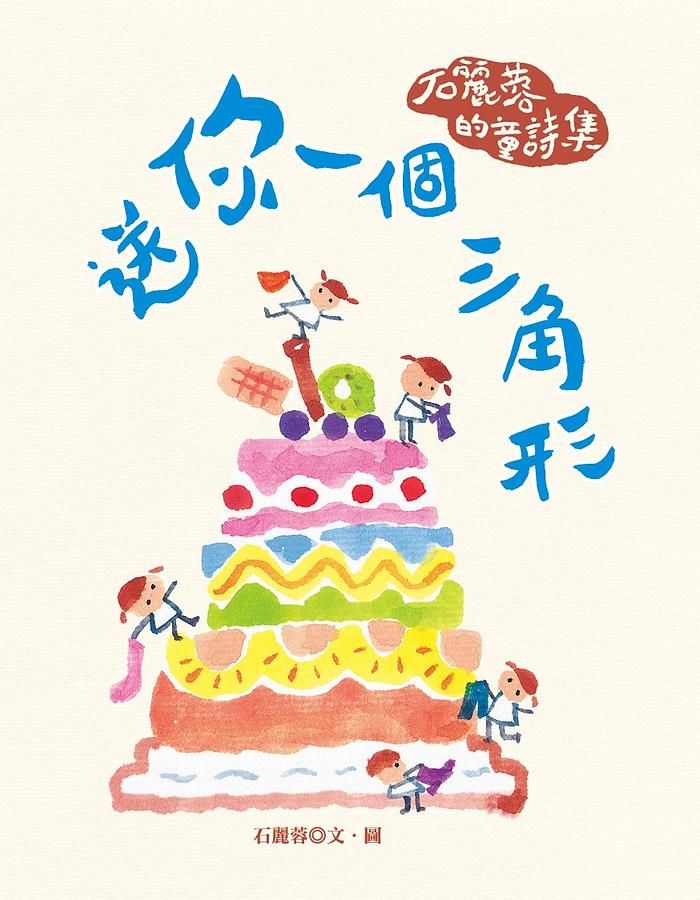 石麗蓉
的童詩集
送你一個
三角形
石麗蓉◎文‧圖